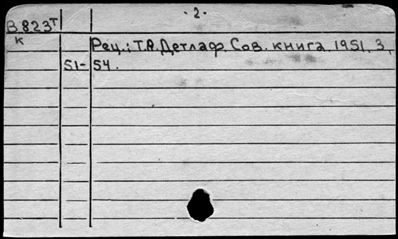 · 2 ·
В 823т
к
Рец.: Т.А. Детлаф. Сов. книга, 1951, 3,
51-54.